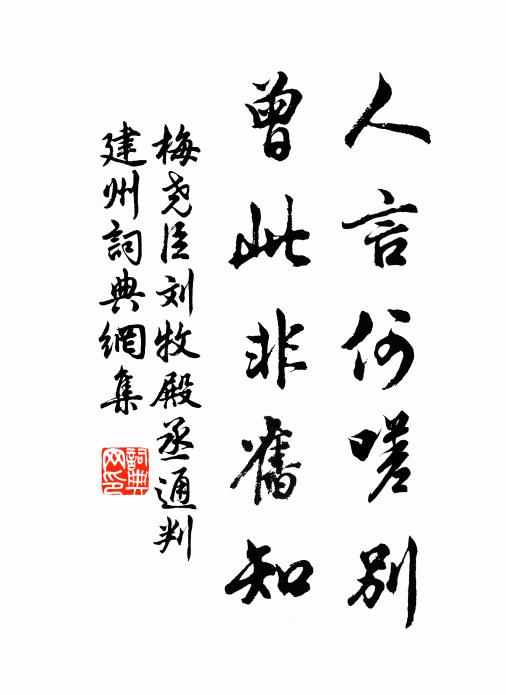 人言何嗟別
曾此非舊知
梅尧臣刘牧殿丞通判
建州詞典網集
詞典
网印